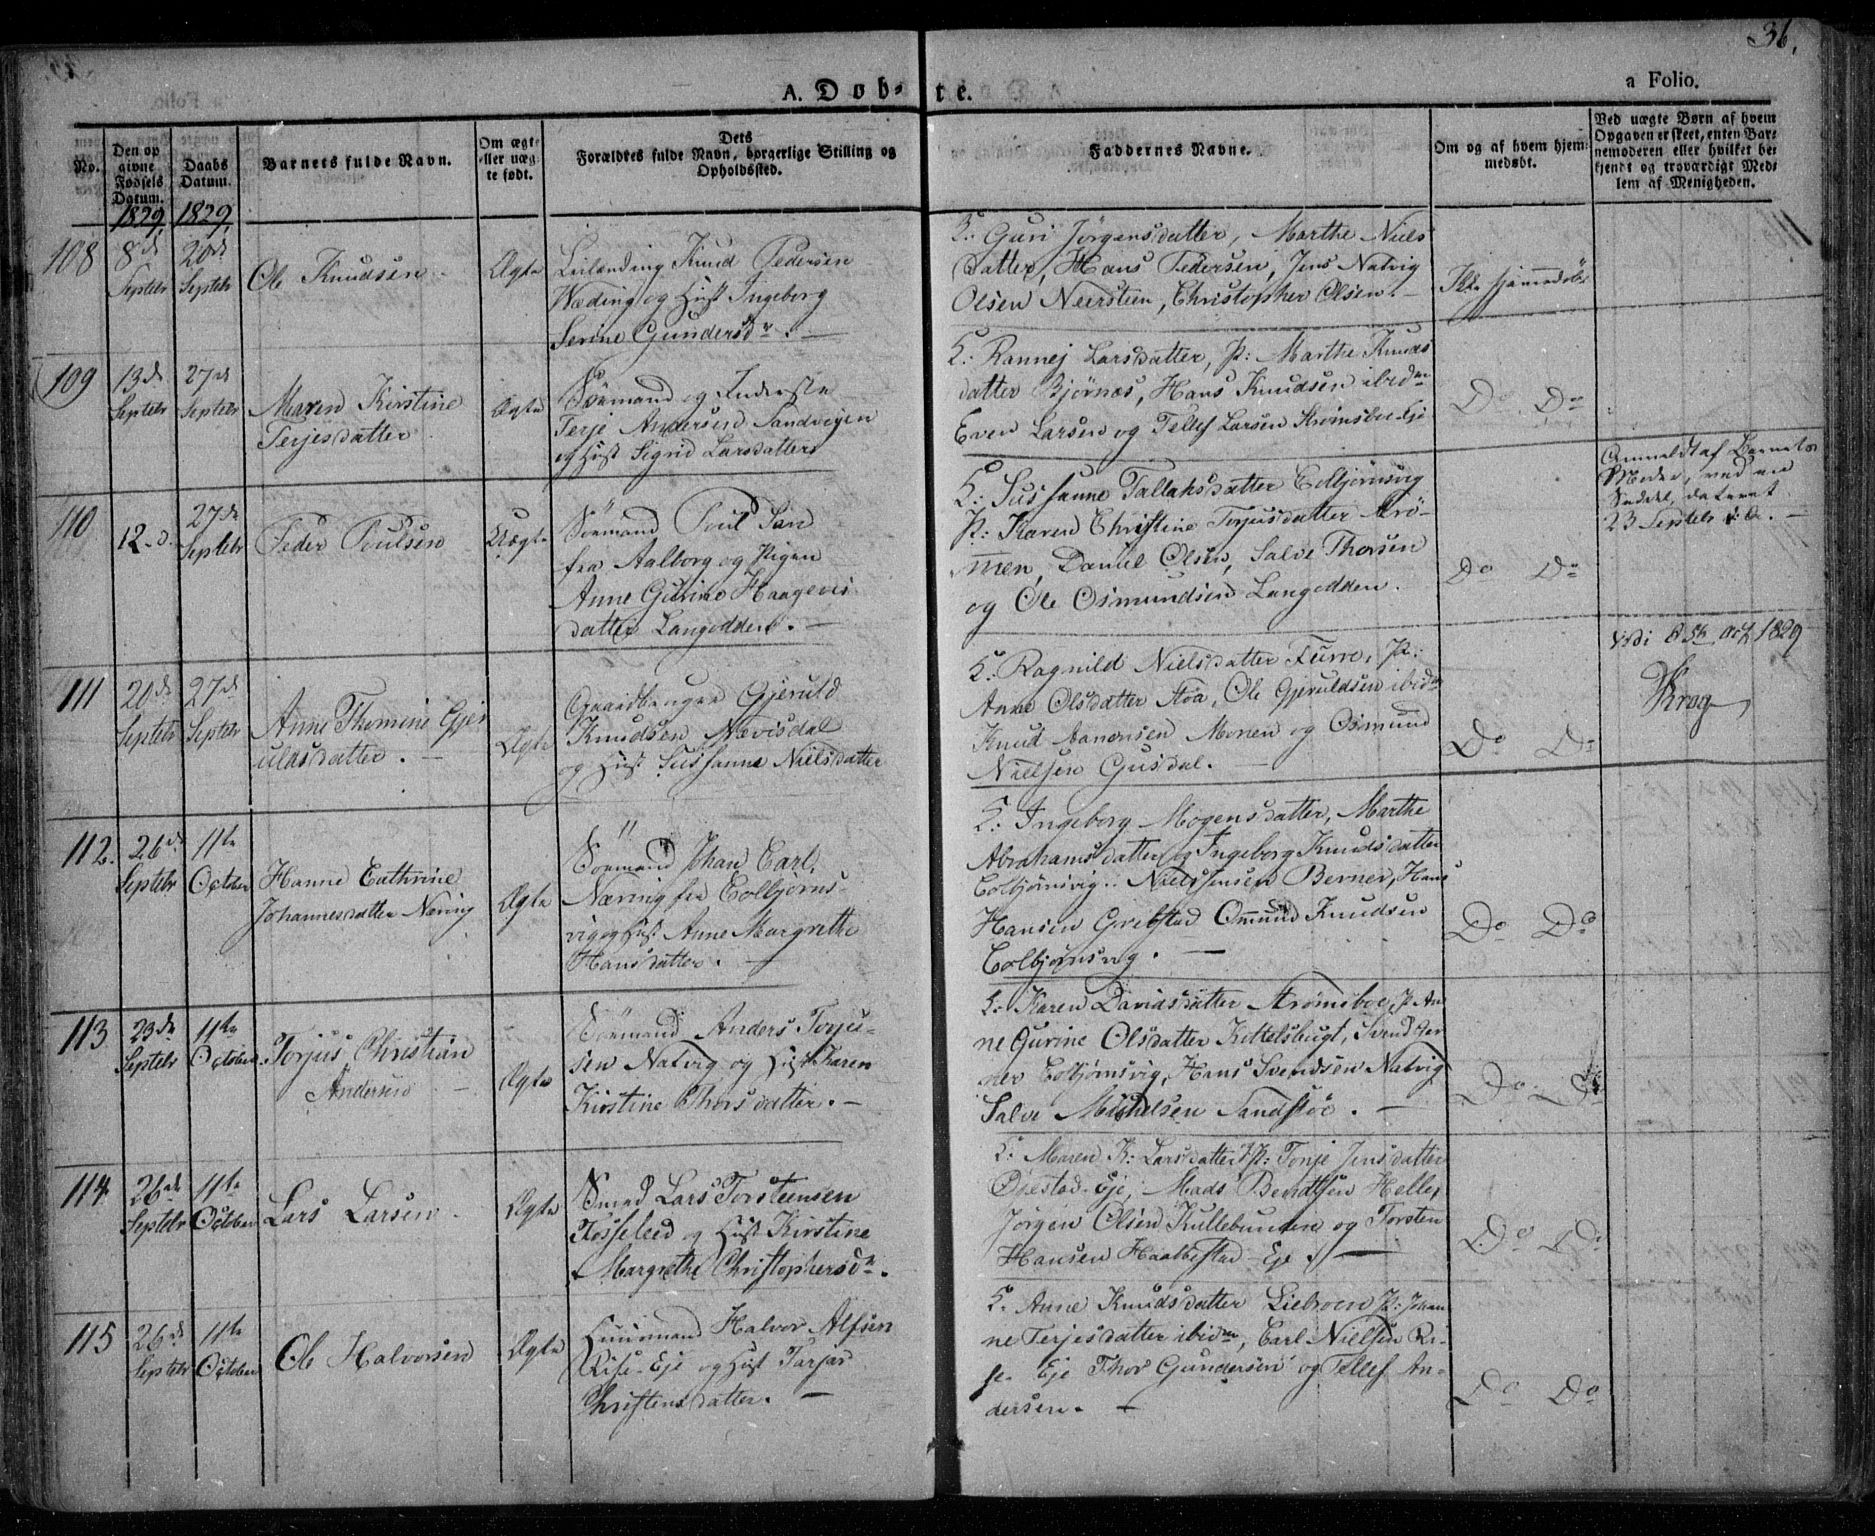 36.
a Folio.
A. Døb- te.
No.
Den op
givne
Fødsels
Datum.
1829.
Daabs
Datum.
1829.
Barnets fulde Navn.
Om ægte
eller uæg-
te født.
Dets
Forældres fulde Navn, borgerlige Stilling og
Opholdssted.
Faddernes Navne.
Om og af hvem hjem-
medøbt.
Ved uægte Børn af hvem
Opgaven er skeet, enten Bar-
nemoderen eller hvilket be-
kjendt og troværdigt Med-
lem af Menigheden.
108
8de
Septebr
20de
Septebr
Ole Knudsen
Ægte
Leilænding Knud Pedersen
Wæding og Hust Ingeborg
Serine Gundersdr. —
Guri Jörgensdatter, Marthe Niels
datter, Hans Pedersen, Jens Natvig
Olsen Neersteen, Christopher Olsen. —
Ikke hjemmedöbt
109
13de
Septebr
27de
Septebr
Maren Kirstine
Terjesdatter
Ægte
Sömand og Inderste
Terje Andersen Sandvigen
og Hust Sigrid Larsdatter
Rannej Larsdatter, P: Marthe Knuds
datter Bjørnæs, Hans Knudsen ibidm
Even Larsen og Tellef Larsen Strømsboe-Eje
Do Do
110
12-d.
27de
Septebr
Peder Poulsen
Uægte
Sömand Poul Jan
fra Aalborg og Pigen
Anne Gurine Haagevis
datter Langodden. —
Sussanne Tallaksdatter Colbjörnsvig
P: Karen Christine Torjusdatter Strö-
mmen, Daniel Olsen, Salve Thorsen
og Ole Osmundsen Langodden.
Do Do
Anmeldt af Barnets
Moder, ved en
Seddel, dateret
23 Septebr d. A. —
111
20de
Septebr
27de
Septebr
Anne Thomine Gjer
uldsdatter. —
Ægte
Gaardbruger Gjeruld
Knudsen Nævisdal
og Hust Sussanne Nielsdatter
Ragnild Nielsdatter Furre, P:
Anne Olsdatter Stoa, Ole Gjeruldsen ibidm
Knud Aanonsen Monen og Osmund
Nielsen Gusdal. —
Do Do
Vidi Oct 1829
Krog
112.
26de
Septebr
11te
October
Hanne Cathrine
Johannesdatter Næring
Ægte
Sömand Johan Carl
Næring fra Colbjörns-
vig og Hust Anne Margrethe
Hansdatter. —
Ingeborg Mogensdatter, Marthe
Abrahamsdatter og Ingeborg Knudsdatter
Colbjörnsvig. Niels Jensen Berner, Hans
Hansen Grebstad Omund Knudsen
Colbjörnsvig. —
Do Do
113
23de
Septebr
11te
October
Torjus Christian
Andersen —
Ægte
Sömand Anders Torju-
sen Natvig og Hust Karen
Kirstine Thorsdatter. —
Karen Davidsdatter Strømsboe, P An
ne Gurine Olsdatter Kittelsbugt, Svend Ber
ner Colbjørnsvig, Hans Svendsen Natvig
Salve Michelsen Sandstöe. —
Do Do
114
26de
Septebr
11te
October
Lars Larsen
Ægte
Smed Lars Torsteensen
Fosseleed og Hust Kirstine
Margrethe Christophersdr.
Maren K: Larsdatter, P: Tonje Jensdatter
Øiestad-Eje, Mads Bendtsen Helle,
Jörgen Olsen Kullebunden og Torsten
Hansen Haabbestad-Eje. —
Do Do
115
26de
Septebr
11te
October
Ole Halvorsen
Ægte
Huusmand Halvor Alfsen
Rise-Eje og Hust Tarjer
Christensdatter. —
Anne Knudsdatter Liebroen P: Johan
ne Terjesdatter ibidm, Carl Nielsen Ri-
se-Eje Thor Gundersen og Tellef An-
dersen. —
Do Do